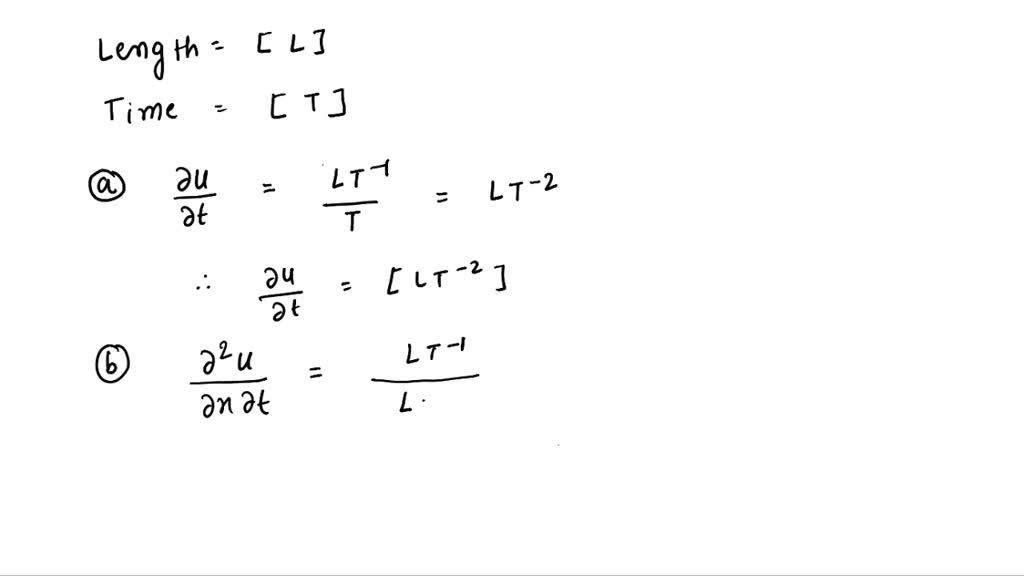 Length = [ L ]
Time = [ T ]
ⓐ ∂u/∂t = LT⁻¹/T = LT⁻²
∴ ∂u/∂t = [ LT⁻² ]
ⓑ ∂²u/∂x∂t = LT⁻¹/L.